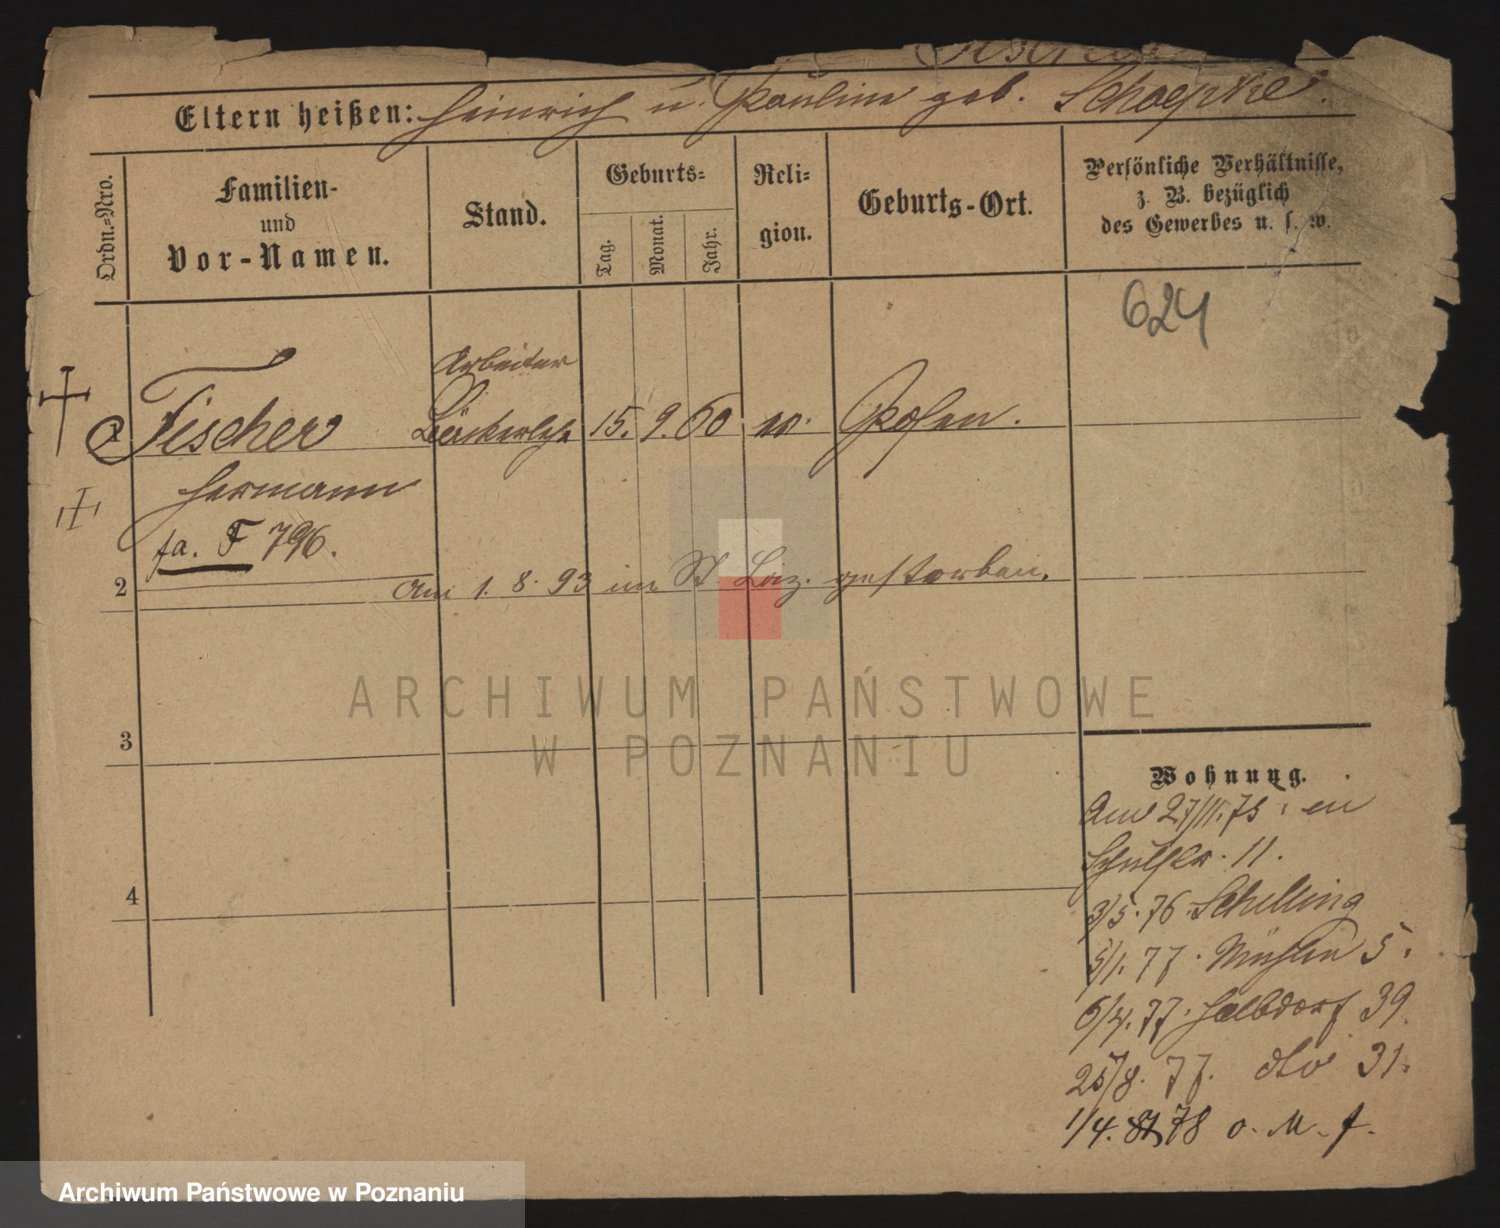 Fischer
Eltern heißen: Heinrich u. Pauline geb. Schoepke.
Ordn.-Nro.
Familien-
und
Vor-Namen.
Stand.
Geburts-
Tag.
Monat.
Jahr.
Reli-
gion.
Geburts-Ort.
Persönliche Verhältnisse,
z. B. bezüglich
des Gewerbes u. s. w.
624
Arbeiter
1 Fischer Bäckerlehr 15. 9. 60 Posen.
Hermann
fa. F 796.
2
Am 1. 8. 93 im St. Laz. gestorben.
3
4
Wohnung.
Am 27/11. 75.
Schulstr. 11.
3/5. 76. Schilling
5/1. 77. Mühlen 5.
6/4. 77. Halbdorf 39.
25/8. 77. dto 31.
1/4. 78 o. M. f.
ARCHIWUM PAŃSTWOWE
W POZNANIU
Archiwum Państwowe w Poznaniu